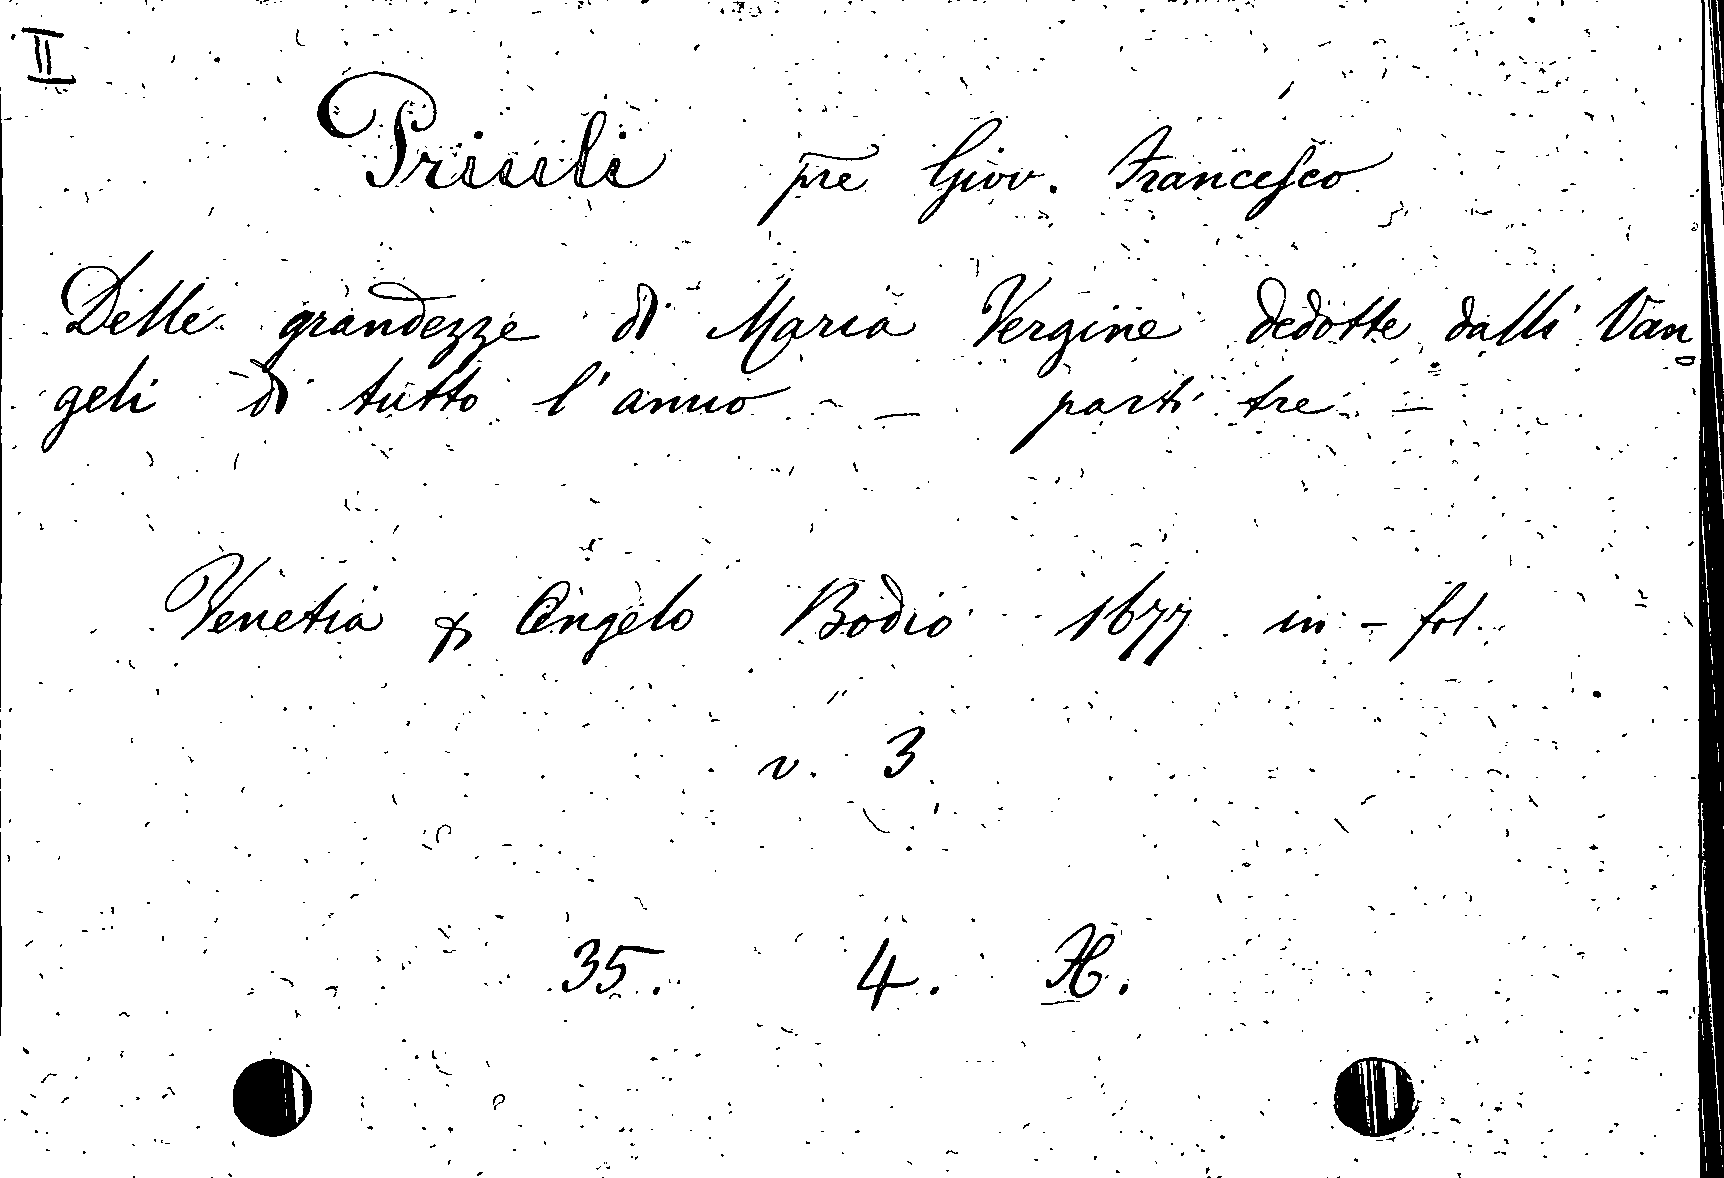 II
Priuli pre Giov. Francesco
Delle grandezze di Maria Vergine dedotte dalli Van
geli di tutto l'anno - - parti tre -
Venetia p Angelo Bodio 1677 in - fol.
v. 3
35. 4. H.